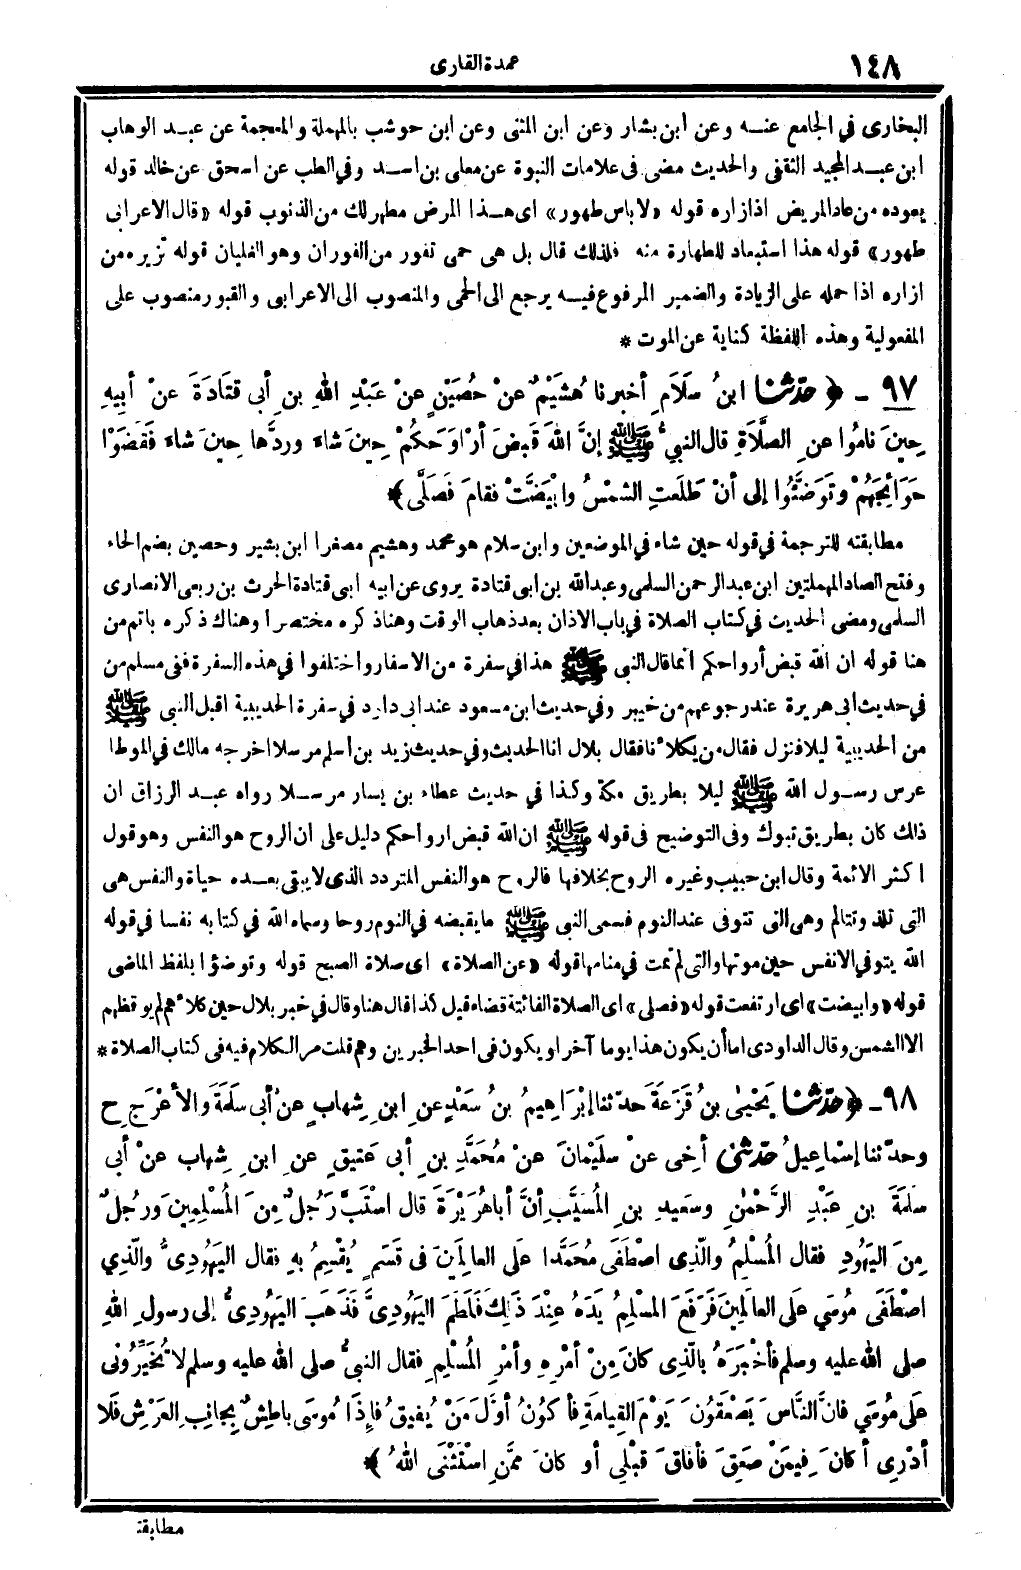 ١٤٨
عمدة القارى
البخارى في الجامع عنه وعن ابن بشار وعن ابن المثنى وعن ابن حوشب بالمهملة والمعجمة عن عبد الوهاب
ابن عبد المجيد الثقفي والحديث مضى فى علامات النبوة عن معلى بن اسد وفي الطب عن اسحق عن خالد قوله
يعوده من عاد المريض اذا زاره قوله «لا باس طهور» اى هذا المرض مطهر لك من الذنوب قوله «قال الاعرابي
طهور» قوله هذا استبعاد للطهارة منه فلذلك قال بل هى حمى تفور من الفوران وهو الغليان قوله تزيره من
ازاره اذا حمله على الزيادة والضمير المرفوع فيه يرجع الى الحمى والمنصوب الى الاعرابى والقبور منصوب على
المفعولية وهذه اللفظة كناية عن الموت *
٩٧ - ﴿حدّثنا ابنُ سَلَامٍ أخبرنا هُشَيْمٌ عنْ حُصَيْنٍ عنْ عَبْدِ اللهِ بنِ أبى قتَادَةَ عنْ أبِيهِ
حِينَ نامُوا عنِ الصَّلَاةِ قال النبيُّ ﷺ إنَّ اللهَ قَبَضَ أرْاوَحَكُمْ حِينَ شاءَ وردَّها حِينَ شاءَ فَقَضَوْا
حَوَائِجَهُمْ وتَوَضَّئُوا إلى أنْ طَلَعَتِ الشمْسُ وابْيَضَّتْ فقامَ فَصَلَّى﴾
مطابقته للترجمة في قوله حين شاء في الموضعين وابن سلام هو محمد وهشيم مصغرا ابن بشير وحصين بضم الحاء
وفتح الصاد المهملتين ابن عبد الرحمن السلمى وعبد الله بن ابى قتادة يروى عن ابيه ابى قتادة الحرث بن ربعى الانصارى
السلمى ومضى الحديث في كتاب الصلاة في باب الاذان بعد ذهاب الوقت وهنا ذكره مختصرا وهناك ذكره باتم من
هنا قوله ان الله قبض أرواحكم انما قال النبى ﷺ هذا في سفرة من الاسفار واختلفوا في هذه السفرة ففى مسلم من
في حديث ابى هريرة عند رجوعهم من خيبر وفي حديث ابن مسعود عند ابى داود في سفرة الحديبية اقبل النبى ﷺ
من الحديبية ليلا فنزل فقال من يكلأ نا فقال بلال انا الحديث وفي حديث زيد بن أسلم مرسلا اخرجه مالك في الموطا
عرس رسول الله ﷺ ليلا بطريق مكة وكذا في حديث عطاء بن يسار مرسلا رواه عبد الرزاق ان
ذلك كان بطريق تبوك وفى التوضيح فى قوله ﷺ ان الله قبض ارواحكم دليل على ان الروح هو النفس وهو قول
اكثر الائمة وقال ابن حبيب وغيره الروح بخلافها فالروح هو النفس المتردد الذى لا يبقى بعده حياة والنفس هى
التى تلذ وتتالم وهى التى تتوفى عند النوم فسمى النبى ﷺ ما يقبضه في النوم روحا وسماه الله في كتابه نفسا في قوله
الله يتوفى الانفس حين موتها والتى لم تمت في منامها قوله «عن الصلاة» اى صلاة الصبح قوله وتوضؤا بلفظ الماضى
قوله «وابيضت» اى ارتفعت قوله «فصلى» اى الصلاة الفائتة قضاء قيل كذا قال هنا وقال في خبر بلال حين كلأهم لم يوقظهم
الا الشمس وقال الداودى اما أن يكون هذا يوما آخر او يكون فى احد الخبرين وهم قلت مر الكلام فيه فى كتاب الصلاة *
٩٨ - ﴿حَدّثنا يَحْيىٰ بنُ قَزَعَةَ حدّثنا إبْرَاهِيمُ بنُ سَعْدٍ عنِ ابنِ شِهابٍ عنْ أبى سلَمَةَ والأعْرَجِ ح
وحدّثنا إسْماعِيلُ حَدّثنى أخِى عنْ سُلَيْمَانَ عنْ مُحَمَّدِ بنِ أبى عَتِيقٍ عنِ ابنِ شِهابٍ عنْ أبى
سلَمَةَ بنِ عَبْدِ الرَّحْمٰنِ وسَعِيدِ بنِ المُسَيَّبِ أنَّ أباهُرَيْرَةَ قال اسْتَبَّ رَجُلٌ مِنَ المُسْلِمِينَ ورَجُلٌ
مِنَ اليَهُودِ فقال المُسْلِمُ والّذِى اصْطَفَى مُحَمَّدًا علَى العالَمِينَ فى قَسَمٍ يُقْسِمُ بهِ فقال اليَهُودِىُّ والّذِي
اصْطَفَى مُوسَي علَى العالَمِينَ فَرَفَعَ المسْلِمُ يَدَهُ عِنْدَ ذَلِكَ فَلَطَمَ اليَهُودِىَّ فَذَهَبَ اليَهُودِىُّ إلى رسولِ اللهِ
صلى الله عليه وسلم فأخْبَرَهُ بالّذِى كانَ مِنْ أمْرِهِ وأمْرِ المُسْلِمِ فقال النبىُّ صلى الله عليه وسلم لا تُخَيِّرُونى
علَى مُوسَي فانَّ النَّاسَ يَصْعَقُونَ يَوْمَ القِيامَةِ فأكُونُ أوَّلَ مَنْ يُفِيقُ فإذَا مُوسَى باطِشٌ بِجانِبِ العَرْشِ فَلا
أدْرِى أكانَ فِيمَنْ صَعِقَ فأفاقَ قبْلِي أو كانَ مِمَّنِ اسْتَثْنَى اللهُ﴾
مطابقة